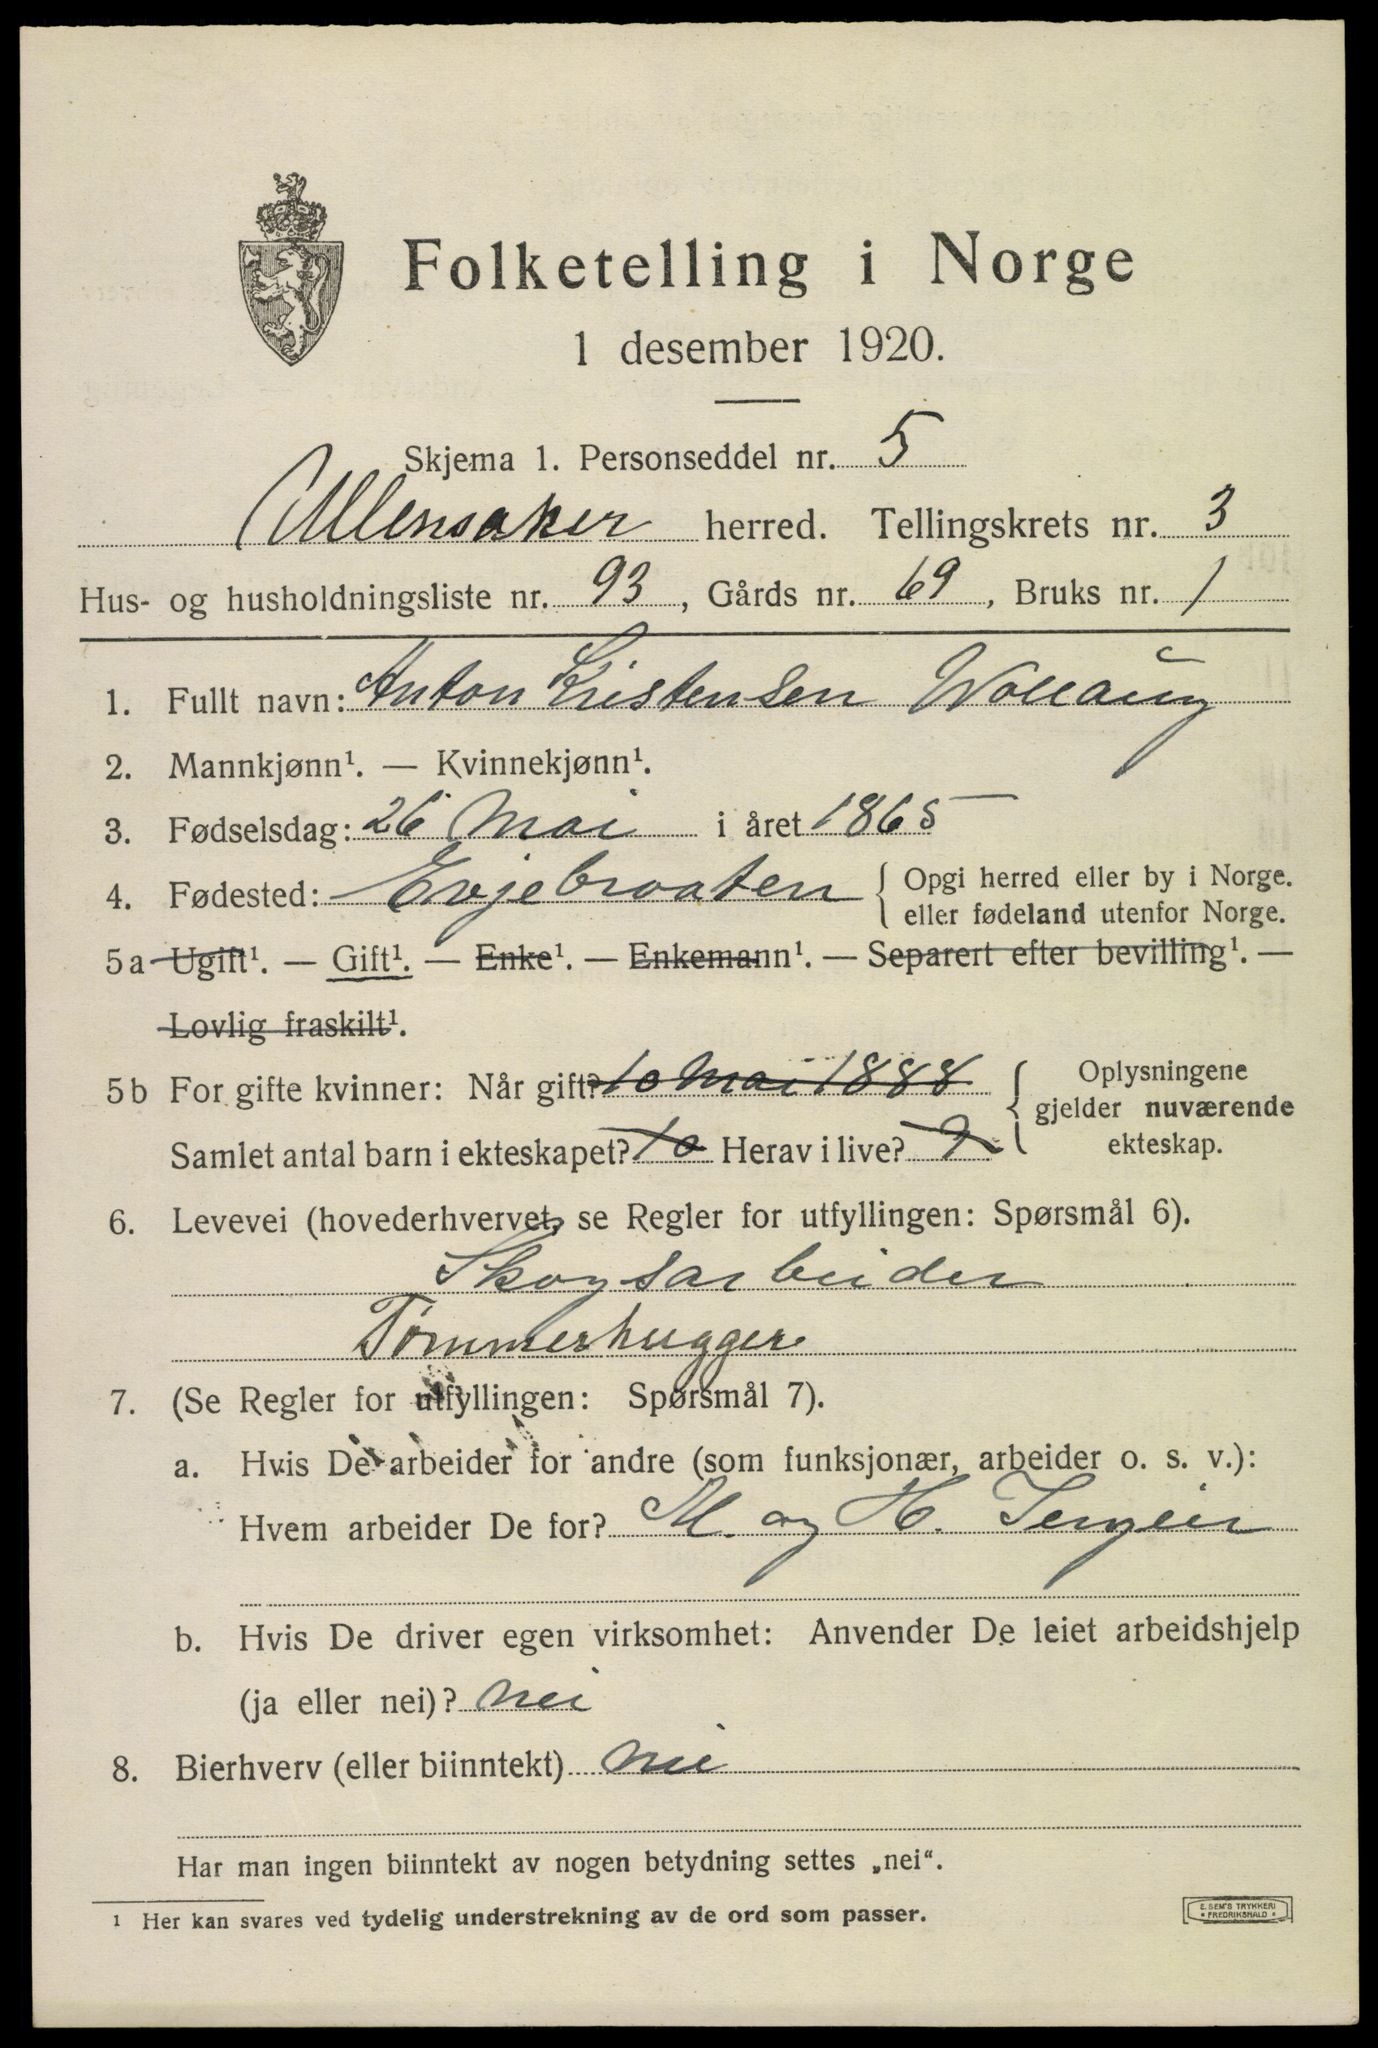 Folketelling i Norge
1 desember 1920.
Skjema 1. Personseddel nr. 5
Ullensaker herred. Tellingskrets nr. 3
Hus- og husholdningsliste nr. 93, Gårds nr. 69, Bruks nr. 1
1. Fullt navn: Anton Kristensen
2. Mannkjønn¹. — Kvinnekjønn¹.
3. Fødselsdag: 26 Mai i året 1865
4. Fødested: Evjebraaten { Opgi herred eller by i Norge.
eller fødeland utenfor Norge.
5a Ugift¹. — Gift¹. — Enke¹. — Enkemann¹. — Separert efter bevilling¹. —
Lovlig fraskilt¹.
5b For gifte kvinner: Når gift? 10 Mai 1888 { Oplysningene
gjelder nuværende
ekteskap.
Samlet antal barn i ekteskapet? 10 Herav i live? 9
6. Levevei (hovederhvervet, se Regler for utfyllingen: Spørsmål 6).
Skogsarbeider
Tømmerhugger
7. (Se Regler for utfyllingen: Spørsmål 7).
a. Hvis De arbeider for andre (som funksjonær, arbeider o. s. v.):
Hvem arbeider De for? M. og H.
b. Hvis De driver egen virksomhet: Anvender De leiet arbeidshjelp
(ja eller nei)? nei
8. Bierhverv (eller biinntekt) nei
Har man ingen biinntekt av nogen betydning settes „nei“.
¹ Her kan svares ved tydelig understrekning av de ord som passer.
E. SEM'S TRYKKERI
* FREDRIKSHALD *